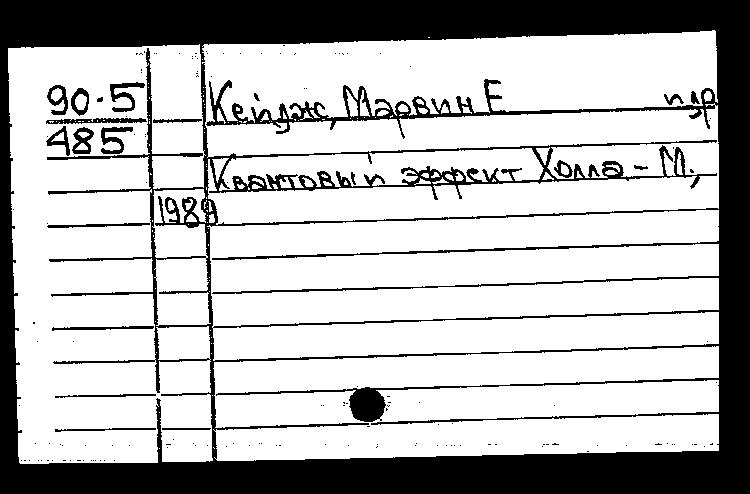 90-5 Кейдж, Марвин Е и др
485
Квантовый эффект Холла - М.,
1989